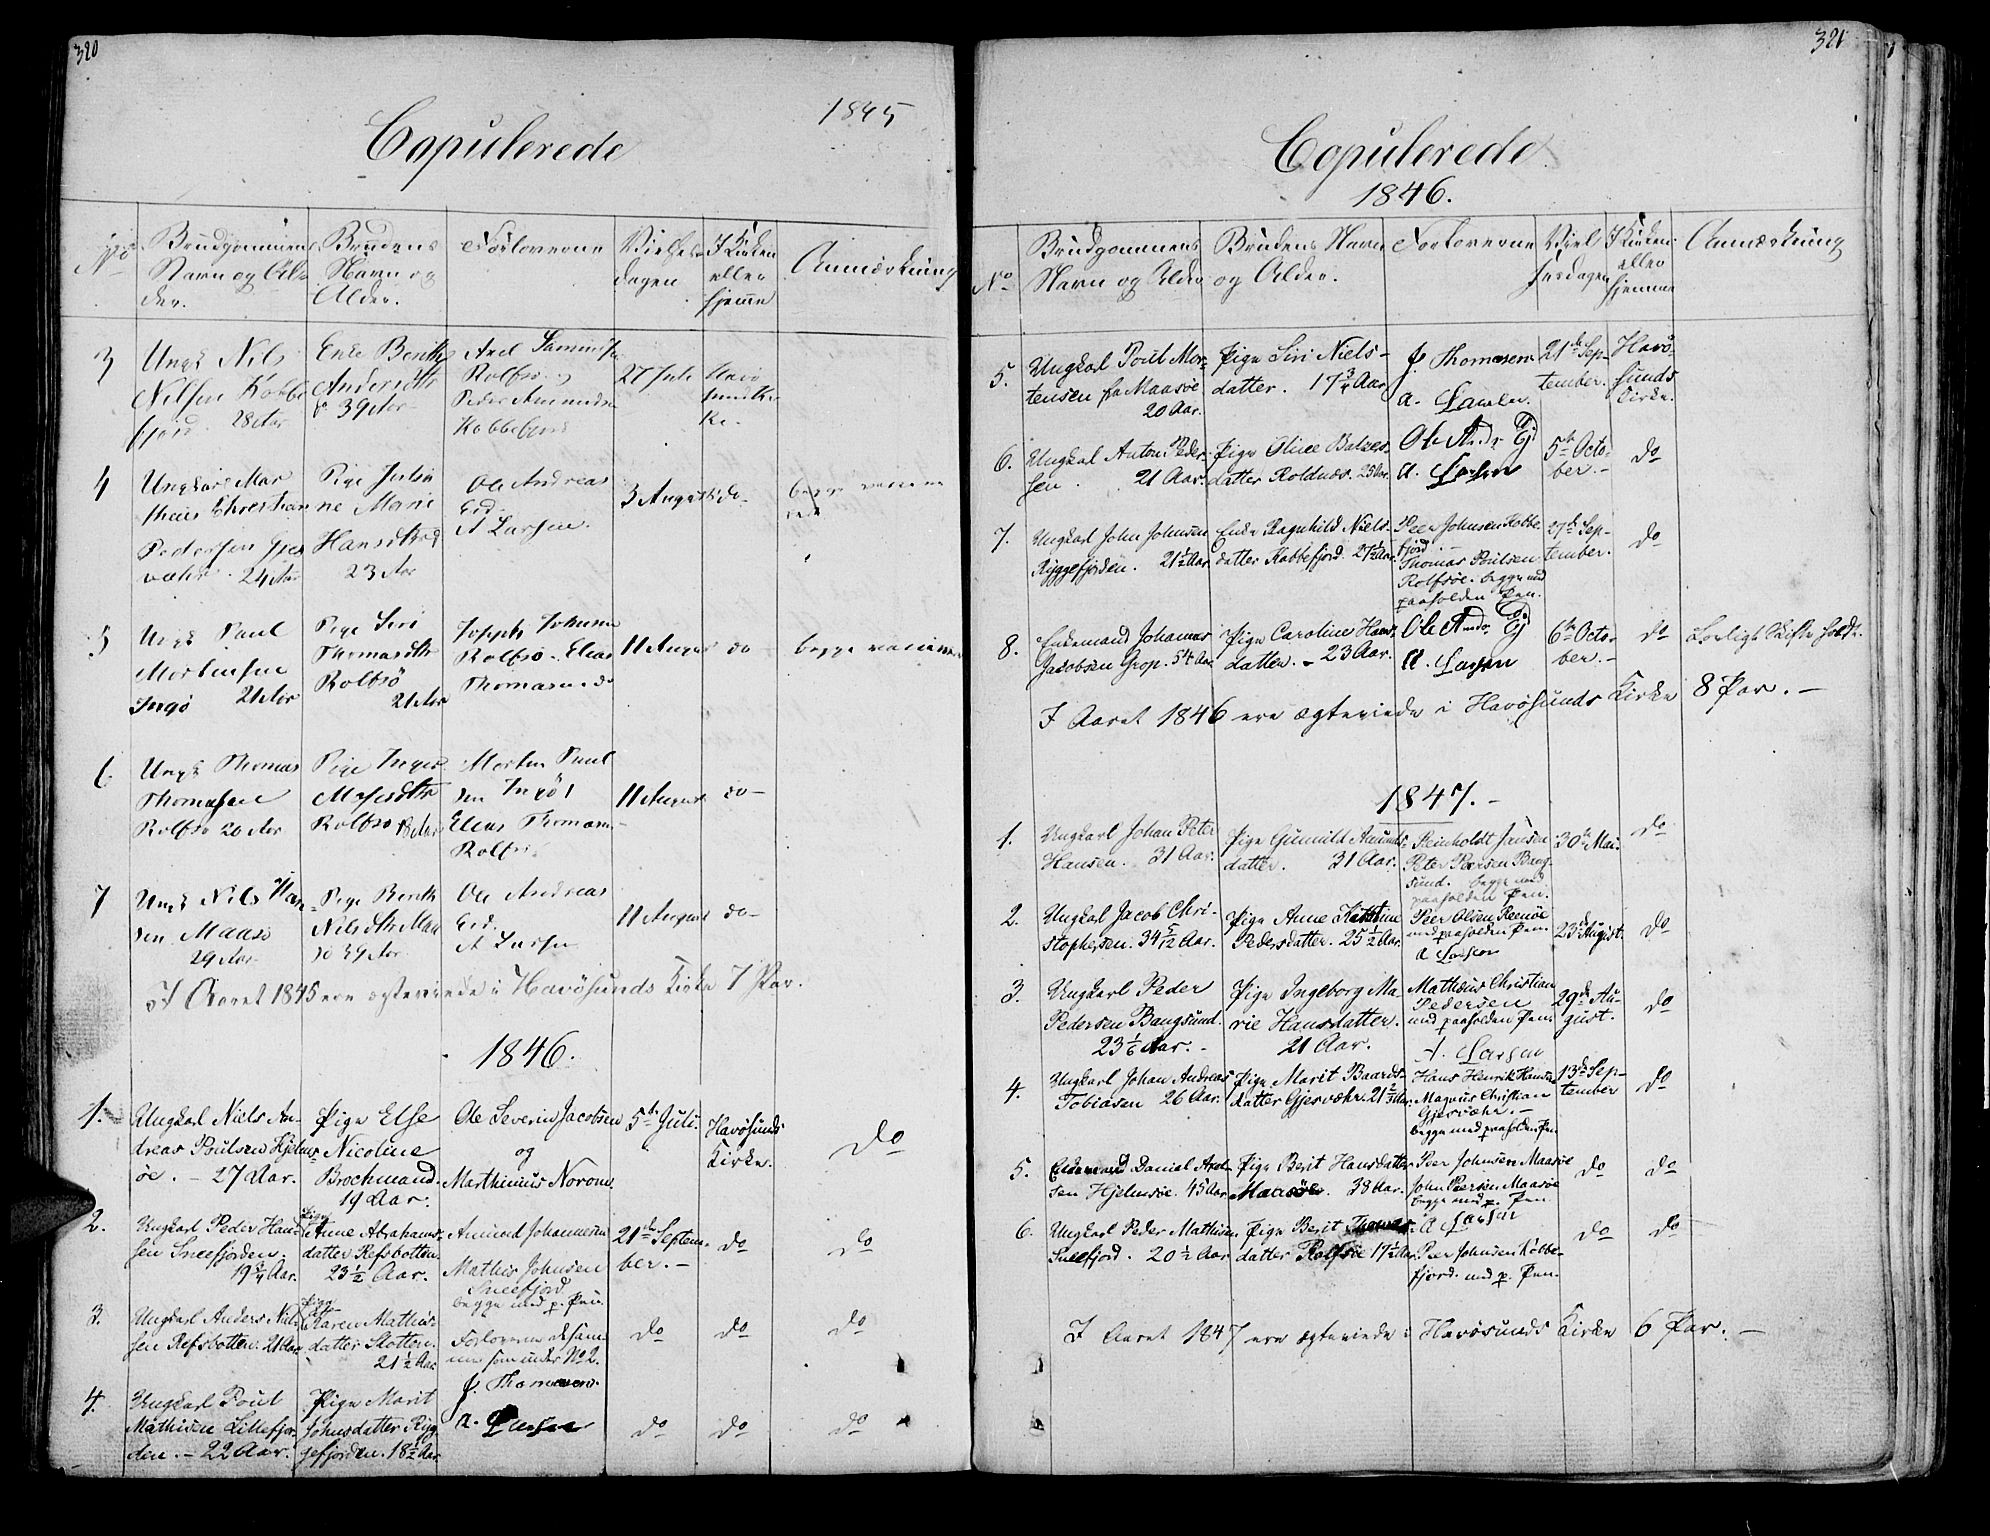 320
1845
Copulerede
No
Brudgommens
Navn og Al-
der.
Brudens
Navn og
Alder.
Forloverne
Vielses
dagen
I Kirken
eller
hjemme
Anmærkning
3
Ungk Nils
Nilsen Kobbe
fjord. 28 Aar
Enke Berith
Andersdtr
39 Aar
Axel Samuelsen
Rolfsø og
Peder Amundsen
Kobbefjord
27 Juli
Havø
sund Kir
ke.
4
Ungkarl Mar
thius Christian
Pedersen Gjes
vær. 24 Aar
Pige Justi
ne Marie
Hansdtr
23 Aar
Ole Andreas
Eid.
A Larsen.
3 August
do
begge vaccine
rede
5
Ungk Paul
Mortensen
Ingø 21 Aar
Pige Siri
Thomasdtr
Rolfsø
21 Aar
Joseph Johnsen
Rolfsø. Elias
Thomasen do
11 August
do
begge vaccine
6
Ungk Thomas
Thomasen
Rolfsø 20 Aar
Pige Inger
Mosesdtr
Rolfsø 18 Aar
Morten Paul
sen Ingø
Elias Thomasen
Rolfsø.
11 August
do
7
Ungk Nils Han
sen Maasø
29 Aar
Pige Berith
Nilsdtr Maa
sø 39 Aar
Ole Andreas
Eid.
A Larsen
11 August
do
I Aaret 1845 ere ægteviede i Havösunds Kirke 7 Par.
1846.
1.
Ungkarl Niels An-
dreas Poulsen Hjelms-
öe. - 27 Aar.
Pige Else
Nicoline
Brochmand.
19 Aar.
Ole Severin Jacobsen
og
Marthinus Norom.
5te Juli.
Havösunds
Kirke.
do
2.
Ungkarl Peder Han-
sen Sneefjorden.
19 3/4 Aar.
Pige
Anne Abrahams-
datter Refsbotten.
23 1/2 Aar.
Amund Johannesen
Mathis Johnsen
Sneefjord
begge med p. Pen.
21de Septem-
ber. -
do
do
3.
Ungkarl Anders Niel-
sen Refsbotten. 21 Aar.
Pige
Karen Mathis-
datter Slotten.
21 1/2 Aar
Forloverne de sam-
me som under No 2.
do
do
do
4.
Ungkarl Poul
Mathisen Lillefjor-
den. - 22 Aar.
Pige Marit
Johnsdatter Ryg-
gefjorden. 18 1/2 Aar.
J. Thomasen.
A. Larsen
do
do
do
321
Copulerede
1846.
No
Brudgommens
Navn og Alder
Brudens Navn
og Alder.
Forloverne
Viel
sesdagen
I Kirken
eller
hjemme
Anmærkning
5.
Ungkarl Poul Mor-
tensen fra Maasöe
20 Aar.
Pige Siri Niels-
datter. 17 3/4 Aar
J. Thomasen
A. Larsen.
21de Sep-
tember.
Havö-
sunds
Kirke.
6.
Ungkarl Anton Peder-
sen. 21 Aar.
Pige Oline Balzers-
datter Roldnæs. 25 Aar.
Ole Andr Eid
A. Larsen
5te Octo-
ber. -
do
7.
Ungkarl John Johnsen
Ryggefjorden. 21 1/2 Aar.
Enke Ragnhild Niels-
datter Kobbefjord. 27 1/2 Aar.
Peer Johnsen Kobbe
fjord. -
Thomas Poulsen
Rolfsöe. begge med
paaholden Pen.
27de Sep-
tember.
do
8.
Enkemand Johannes
Jacobsen Grop. 54 Aar.
Pige Caroline Hans-
datter. - 23 Aar.
Ole Andr. Eid
A. Larsen
6te Octo-
ber. -
do
Lovligt Skifte holdt.
I Aaret 1846 ere ægteviede i Havösunds Kirke 8 Par. -
1847. -
1.
Ungkarl Johan Peter
Hansen. 31 Aar.
Pige Gunnild Amunds-
datter. 31 Aar.
Reinholdt Jansen
Peter Persen Bang-
sund. begge med
paaholden Pen.
30te Mai.
do
2.
Ungkarl Jacob Chri-
stophersen. 34 5/12 Aar.
Pige Anne Kathrine
Pedersdatter. 25 1/2 Aar.
Peer Olsen Reenöe
med paaholden Pen.
A Larsen
23de August.
do
3.
Ungkarl Peder
Pedersen Bangsund.
23 1/6 Aar. -
Pige Ingeborg Ma-
rie Hansdatter.
21 Aar.
Mathæus Christian
Pedersen
med paaholden Pen.
A. Larsen
29de Au-
gust.
do
4.
Ungkarl Johan Andreas
Tobiasen 26 Aar.
Pige Marit Baards-
datter Gjesvæhr. 21 2/3 Aar.
Hans Henrik Hansen
Magnus Christian
Gjesvæhr. -
begge med paaholden Pen
13de Sep-
tember
do
5.
Enkemand Daniel Axel-
sen Hjelmsöe. 45 Aar.
Pige Berit Hansdatter
Maasöe. 38 Aar.
Peer Johnsen Maasöe
John Peersen Maasöe
begge med p. Pen
do
do
6.
Ungkarl Peder Mathisen
Sneefjord. 20 1/2 Aar
Pige Berit Thomas-
datter Rolfsöe 17 1/2 Aar.
A Larsen
Peer Johnsen Kobbe-
fjord. med p. Pen.
do
do
I Aaret 1847 ere ægteviede i Havösunds Kirke 6 Par. -